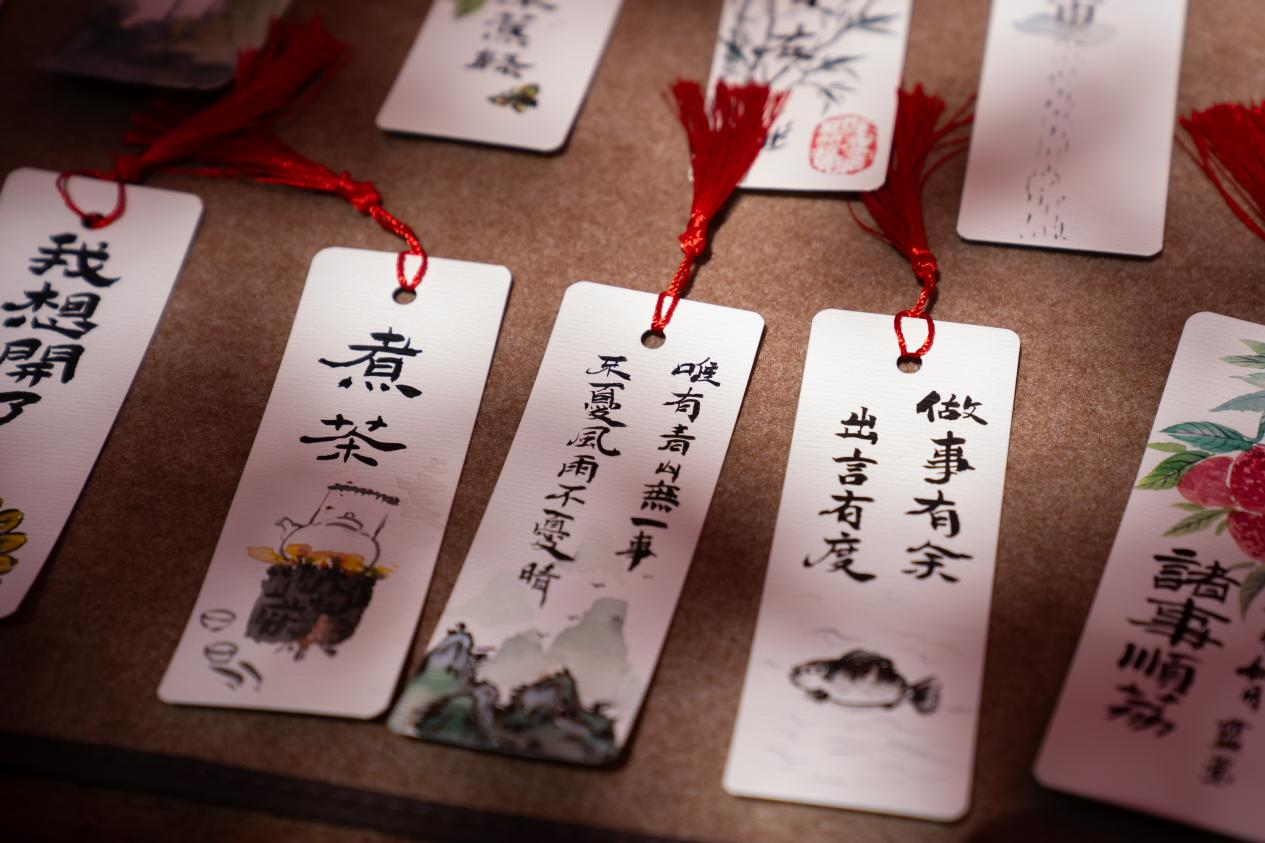 我想開了
煮茶
唯有青山無一事
不憂風雨不憂晴
做事有余
出言有度
諸事順荔